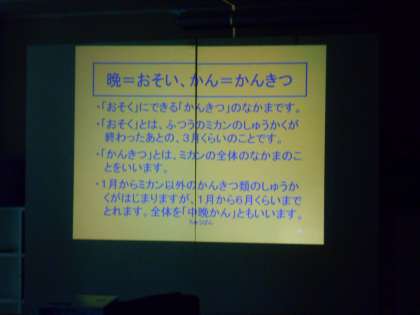 晩＝おそい、かん＝かんきつ
・「おそく」にできる「かんきつ」のなかまです。
・「おそく」とは、ふつうのミカンのしゅうかくが
終わったあとの、3月くらいのことです。
・「かんきつ」とは、ミカンの全体のなかまのこ
とをいいます。
・1月からミカン以外のかんきつ類のしゅうか
くがはじまりますが、1月から6月くらいまで
とれます。全体を「中晩かん」ともいいます。
ちゅうばん